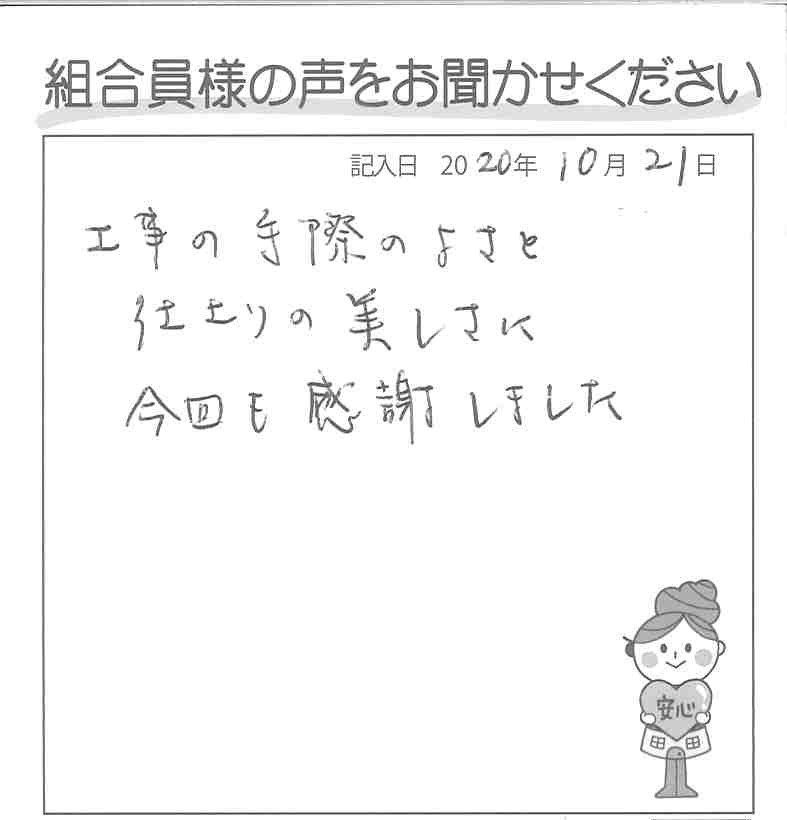 組合員様の声をお聞かせください
記入日 2020年 10月 21日
工事の手際のよさと
仕上りの美しさに
今回も感謝しました
安心